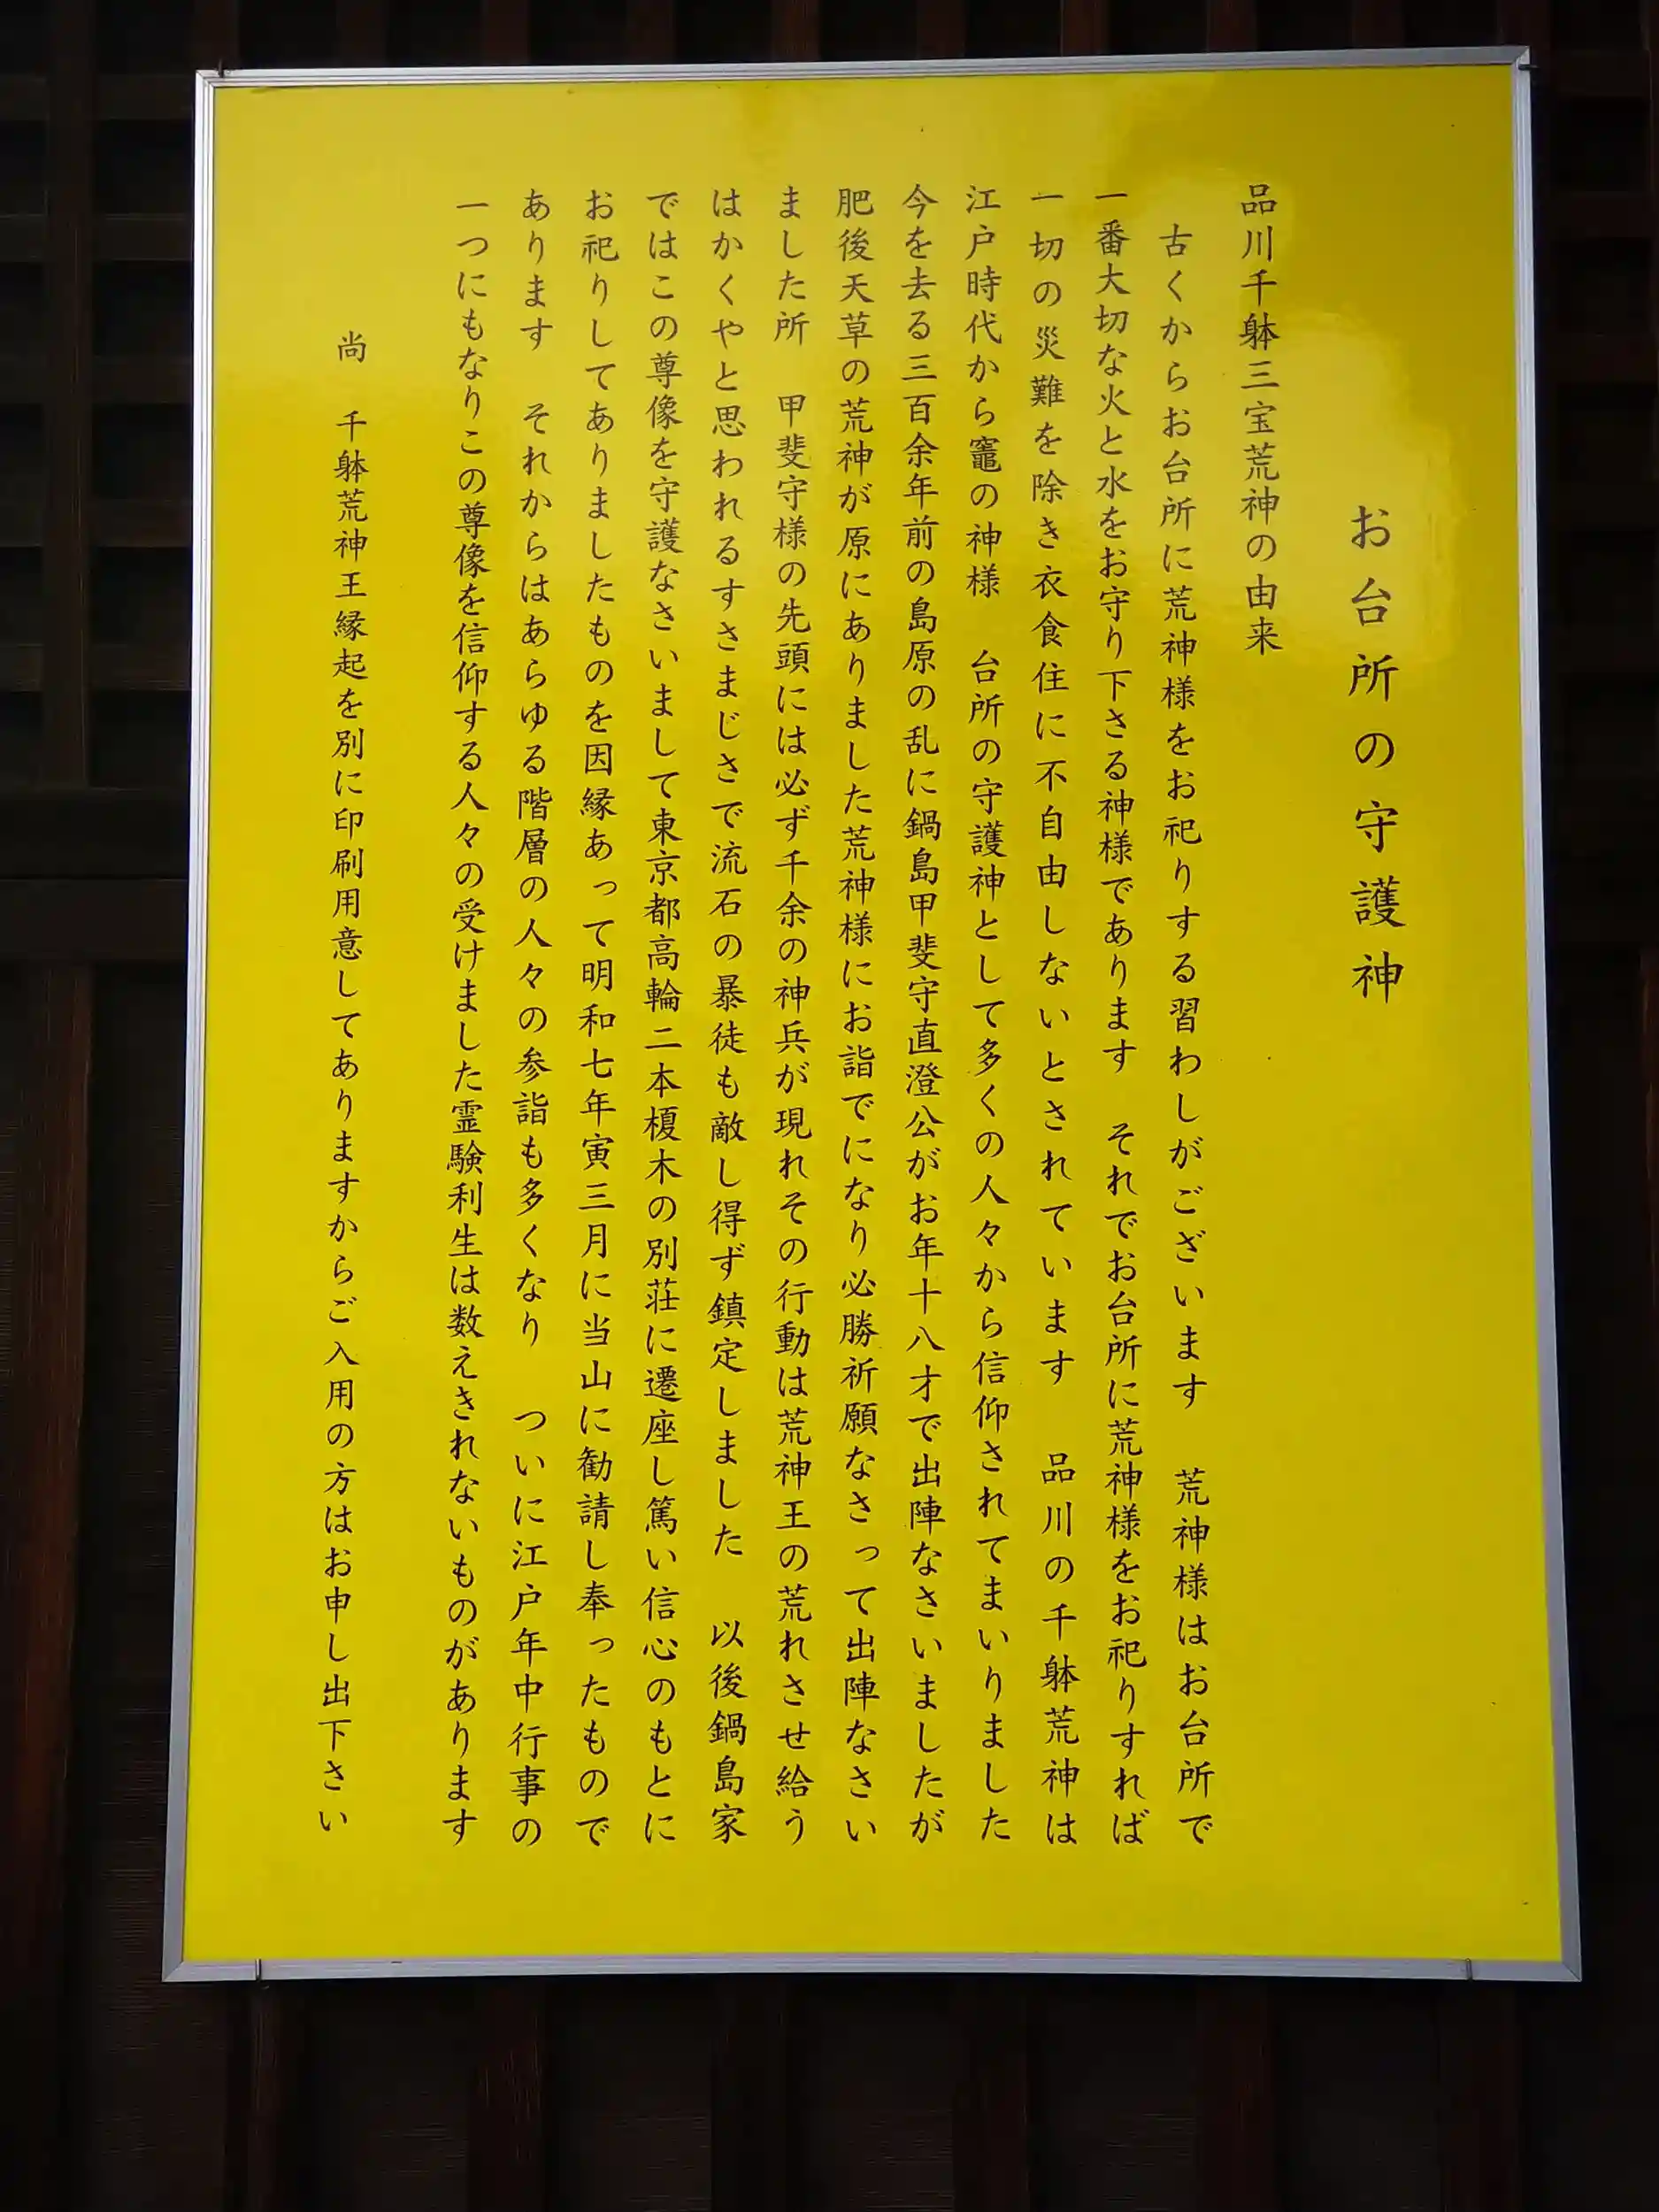 お台所の守護神
品川千躰三宝荒神の由来
古くからお台所に荒神様をお祀りする習わしがございます　荒神様はお台所で
一番大切な火と水をお守り下さる神様であります　それでお台所に荒神様をお祀りすれば
一切の災難を除き衣食住に不自由しないとされています　品川の千躰荒神は
江戸時代から竈の神様　台所の守護神として多くの人々から信仰されてまいりました
今を去る三百余年前の島原の乱に鍋島甲斐守直澄公がお年十八才で出陣なさいましたが
肥後天草の荒神が原にありました荒神様にお詣でになり必勝祈願なさって出陣なさい
ました所　甲斐守様の先頭には必ず千余の神兵が現れその行動は荒神王の荒れさせ給う
はかくやと思われるすさまじさで流石の暴徒も敵し得ず鎮定しました　以後鍋島家
ではこの尊像を守護なさいまして東京都高輪二本榎木の別荘に遷座し篤い信心のもとに
お祀りしてありましたものを因縁あって明和七年寅三月に当山に勧請し奉ったもので
あります　それからはあらゆる階層の人々の参詣も多くなり　ついに江戸年中行事の
一つにもなりこの尊像を信仰する人々の受けました霊験利生は数えきれないものがあります
尚　千躰荒神王縁起を別に印刷用意してありますからご入用の方はお申し出下さい